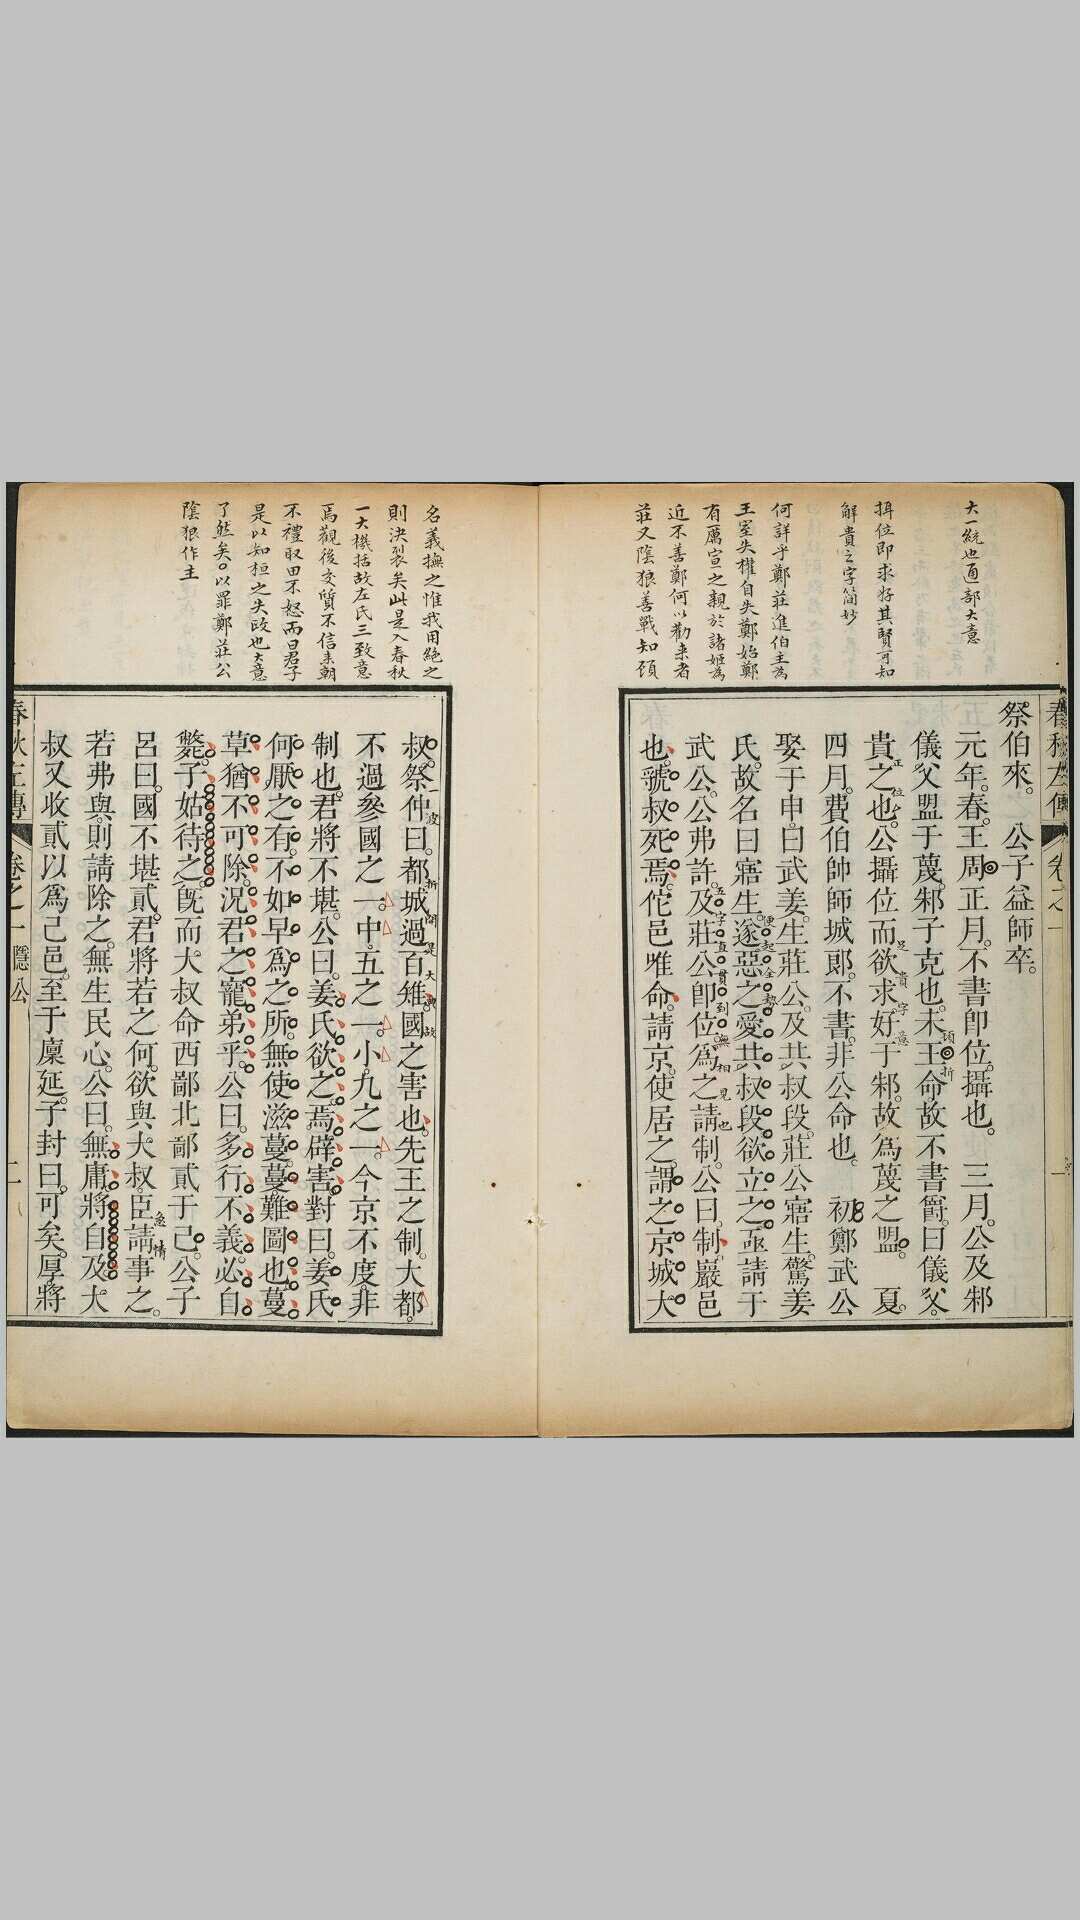 大一統也通部大意
揖位即求好其賢可知
解貴之字簡妙
何詳乎鄭莊進伯主為
王室失權自失鄭始鄭
有厲宣之親於諸姬為
近不善鄭何以勸來者
莊又陰狠善戰知頎
春秋左傳
卷之一
祭伯來。公子益師卒。
元年。春。王周正月。不書即位。攝也。三月。公及邾
儀父盟于蔑。邾子克也。未王命。故不書爵。曰儀父。
貴之也。公攝位而欲求好于邾。故為蔑之盟。夏。
四月。費伯帥師城郎。不書。非公命也。初鄭武公
娶于申。曰武姜。生莊公。及共叔段。莊公寤生。驚姜
氏。故名曰寤生。遂惡之。愛共叔段。欲立之。亟請于
武公。公弗許。及莊公即位。為之請制。公曰。制。巖邑
也。虢叔死焉。佗邑唯命。請京。使居之。謂之京城大
正位
足貴字意
項折
便起全勢
五字直貫到無相見也
名義撫之惟我用絕之
則決裂矣此是入春秋
一大機括故左氏三致意
焉觀後交質不信來朝
不禮取田不怒而曰君子
是以知桓之失政也大意
了然矣。以罪鄭莊公
陰狠作主
叔。祭仲曰。都城過百雉。國之害也。先王之制。大都。
不過參國之一。中。五之一。小。九之一。今京不度。非
制也。君將不堪。公曰。姜氏欲之。焉辟害。對曰。姜氏
何厭之有。不如早為之所。無使滋蔓。蔓難圖也。蔓
草猶不可除。況君之寵弟乎。公曰。多行不義。必自
斃。子姑待之。既而大叔命西鄙北鄙貳于己。公子
呂曰。國不堪貳。君將若之何。欲與大叔。臣請事之。
若弗與。則請除之。無生民心。公曰。無庸。將自及。大
叔又收貳以為己邑。至于廩延。子封曰。可矣。厚將
一波
折
開是大典故
急情
春秋左傳
卷之一
隱公
二